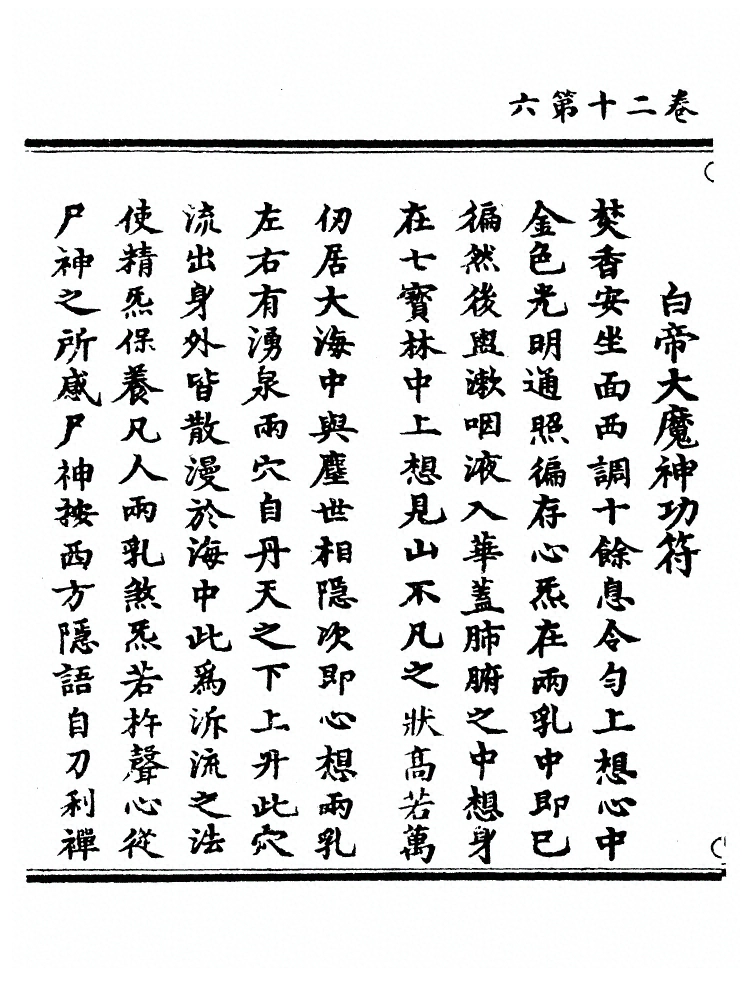 卷二十第六
白帝大魔神功符
焚香安坐面西調十餘息令勻上想心中
金色光明通照徧存心炁在兩乳中即已
徧然後與漱咽液入華蓋肺腑之中想身
在七寶林中上想見山不凡之狀高若萬
仞居大海中與塵世相隱次即心想兩乳
左右有湧泉兩穴自丹天之下上升此穴
流出身外皆散漫於海中此為泝流之法
使精炁保養凡人兩乳煞炁若杵聲心從
尸神之所感尸神按西方隱語自刀利禪